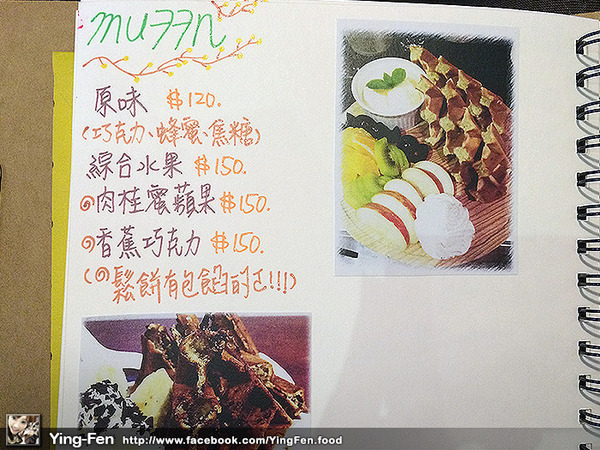 muffn
原味 $120.
(巧克力、蜂蜜、焦糖)
綜合水果 $150.
肉桂蜜蘋果 $150.
香蕉巧克力 $150.
(鬆餅有包餡的ㄛ!!!)
Ying-Fen http://www.facebook.com/YingFen.food